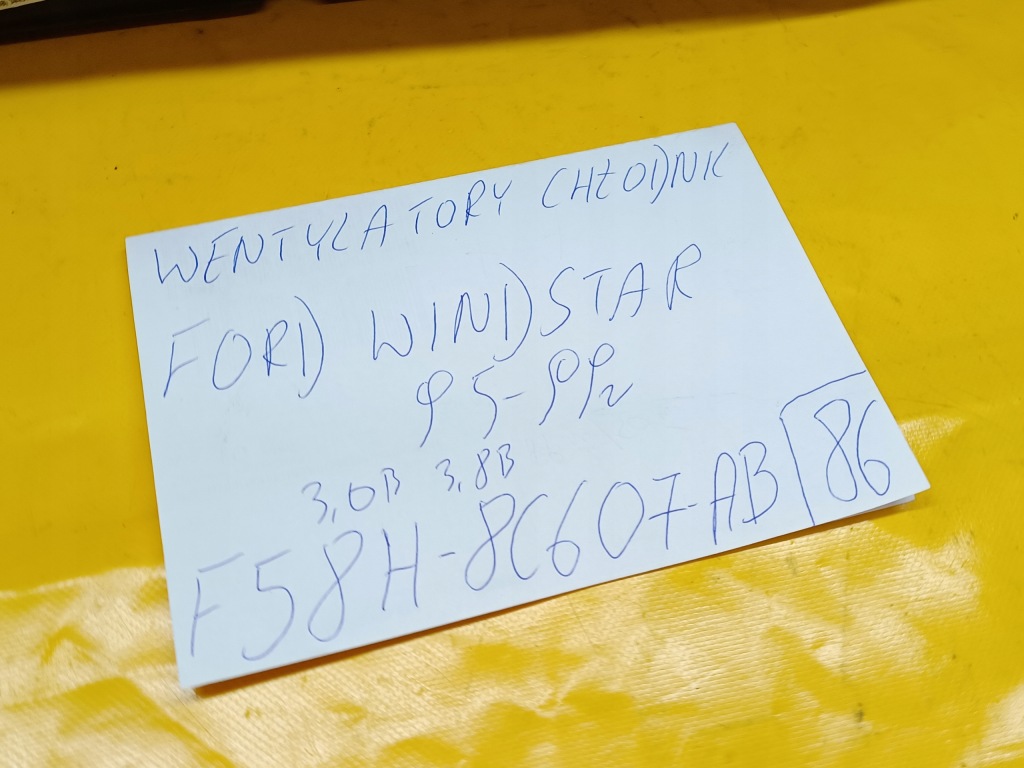 WENTYLATORY CHŁODNIC
FORD WINDSTAR
95-99r
3,0B 3,8B
F58H-8C607-AB 86